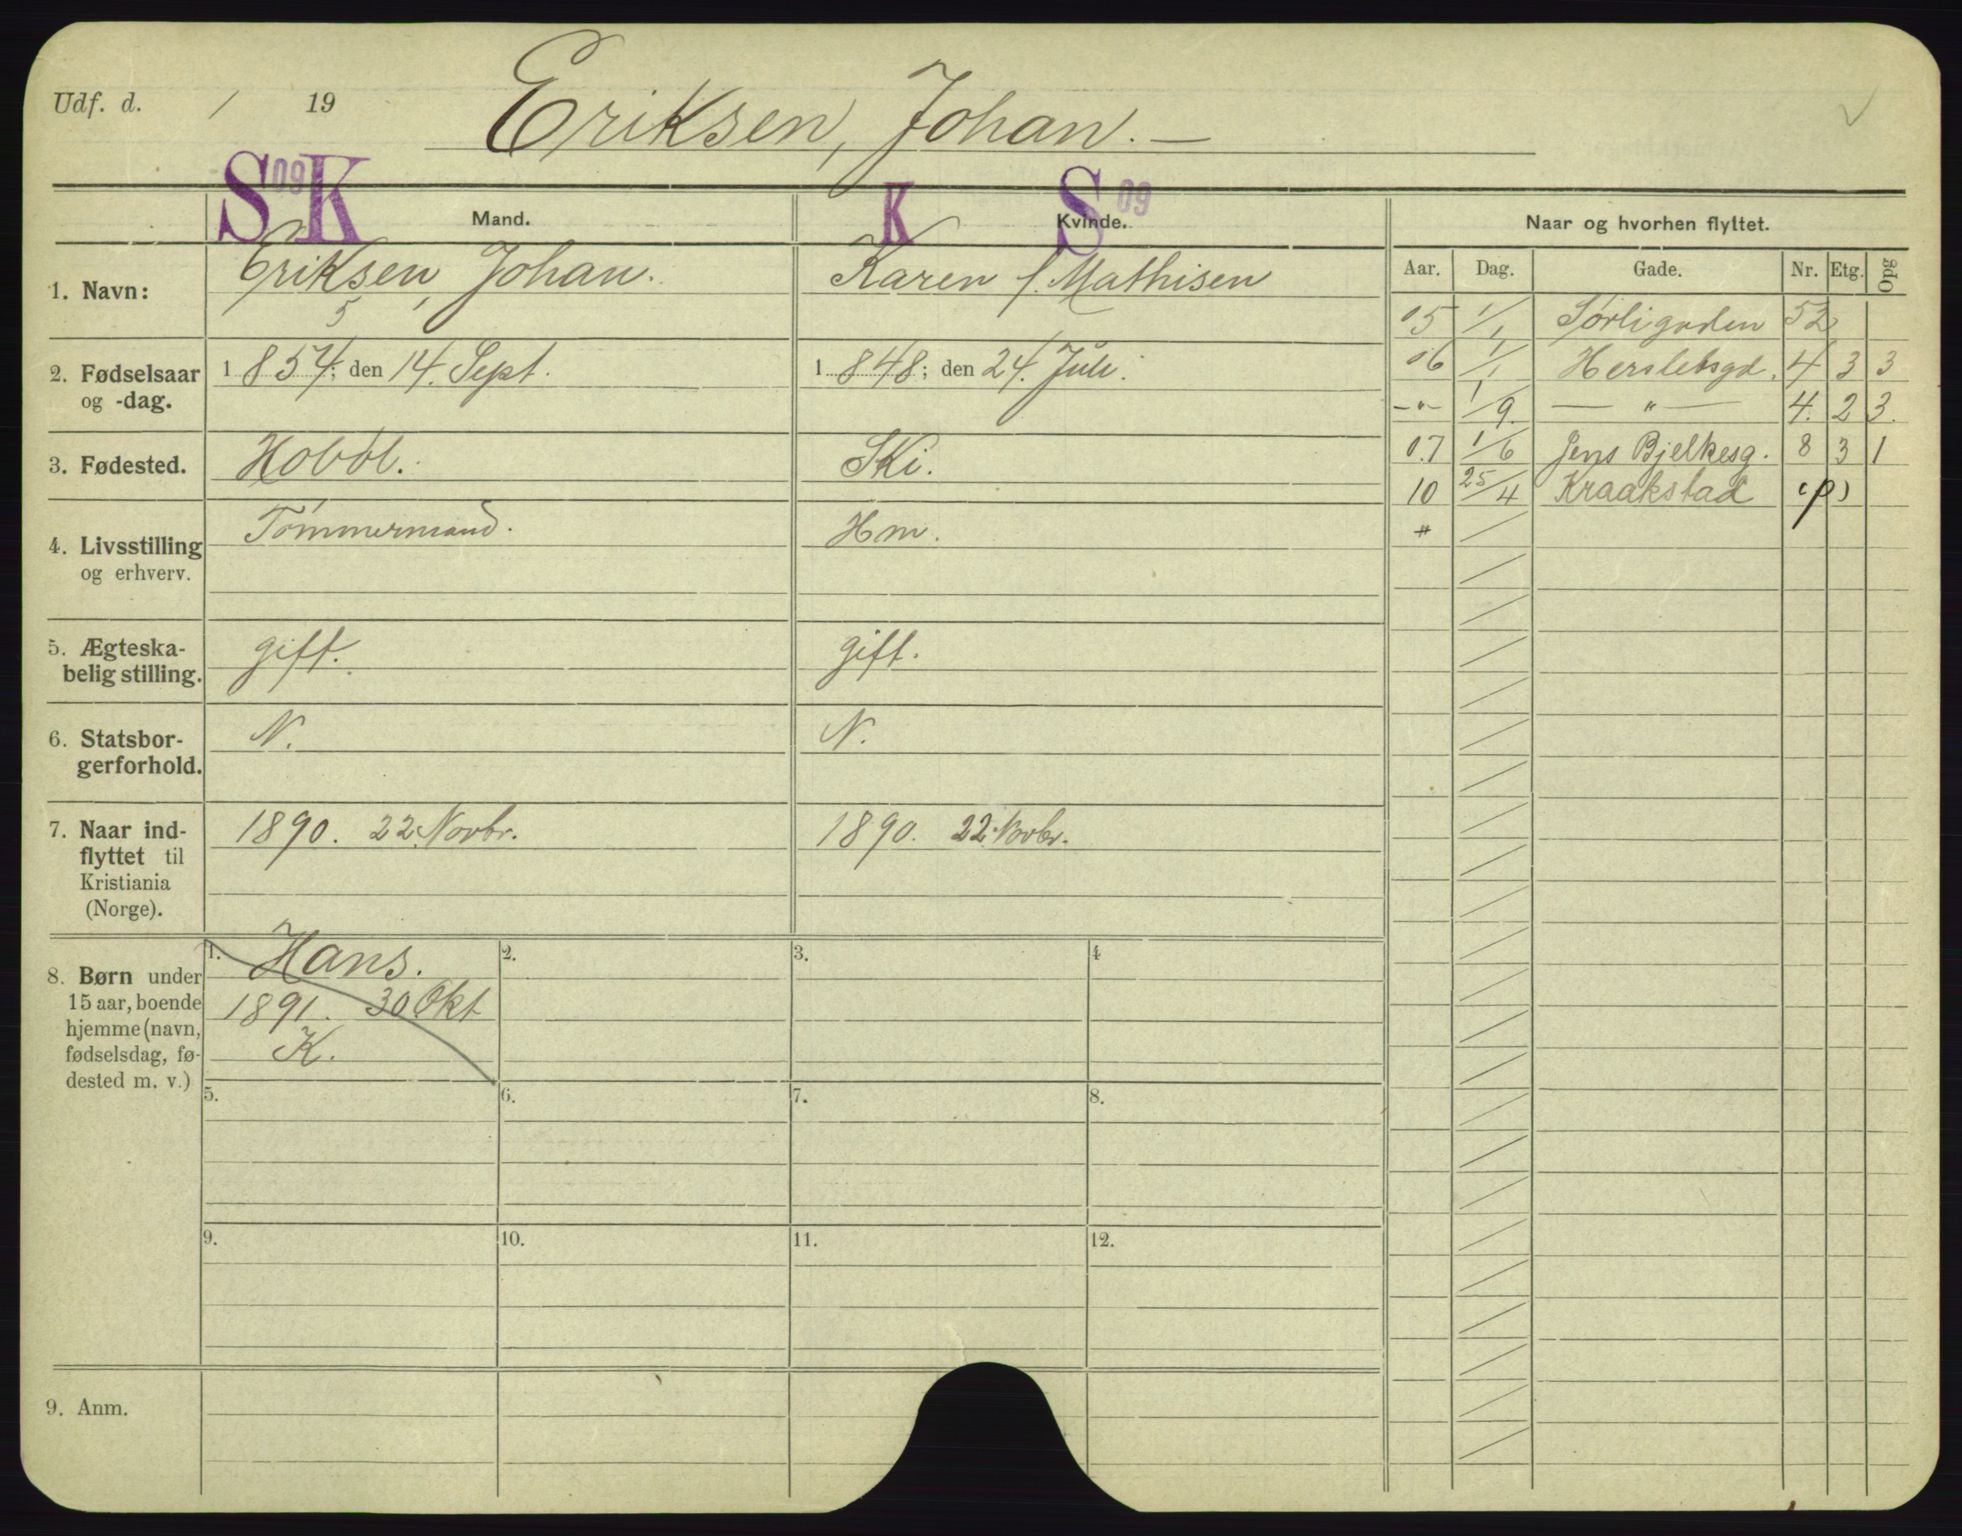 Udf. d. / 19
Eriksen, Johan. —
S 09 K
K S 09
Mand. Kvinde. Naar og hvorhen flyttet.
Aar. Dag. Gade. Nr. Etg. Opg
1. Navn: Eriksen, Johan. Karen f. Mathisen
5
05 1/1 Sørligaden 52
2. Fødselsaar og -dag. 1854; den 14. Sept. 1848; den 24. Juli.
06 1/1 Herslebsgd. 4 3 3
-"- 1/9. — " — 4. 2 3.
3. Fødested. Hobøl. Ski.
07 1/6 Jens Bjelkesg. 8 3 1
10 25/4 Kraakstad (p)
4. Livsstilling og erhverv. Tømmermand. Hm.
5. Ægteska-
belig stilling. gift. gift.
6. Statsbor-
gerforhold. N. N.
7. Naar ind-
flyttet til
Kristiania
(Norge).
1890. 22. Novbr. 1890. 22. Novbr.
8. Børn under
15 aar, boende
hjemme (navn,
fødselsdag, fø-
dested m. v.)
1. Hans.
1891. 30. Okt
K.
2. 3. 4
5. 6. 7. 8.
9. 10. 11. 12.
9. Anm.